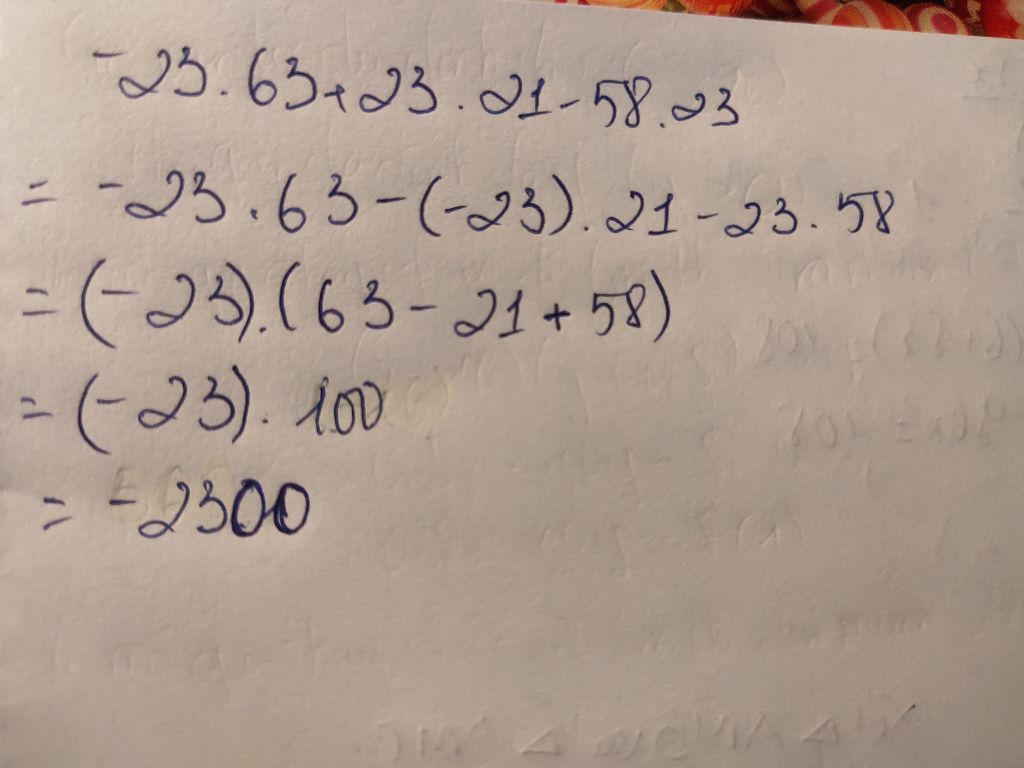 -23.63+23.21-58.23
= -23.63-(-23).21-23.58
= (-23).(63-21+58)
= (-23).100
= -2300